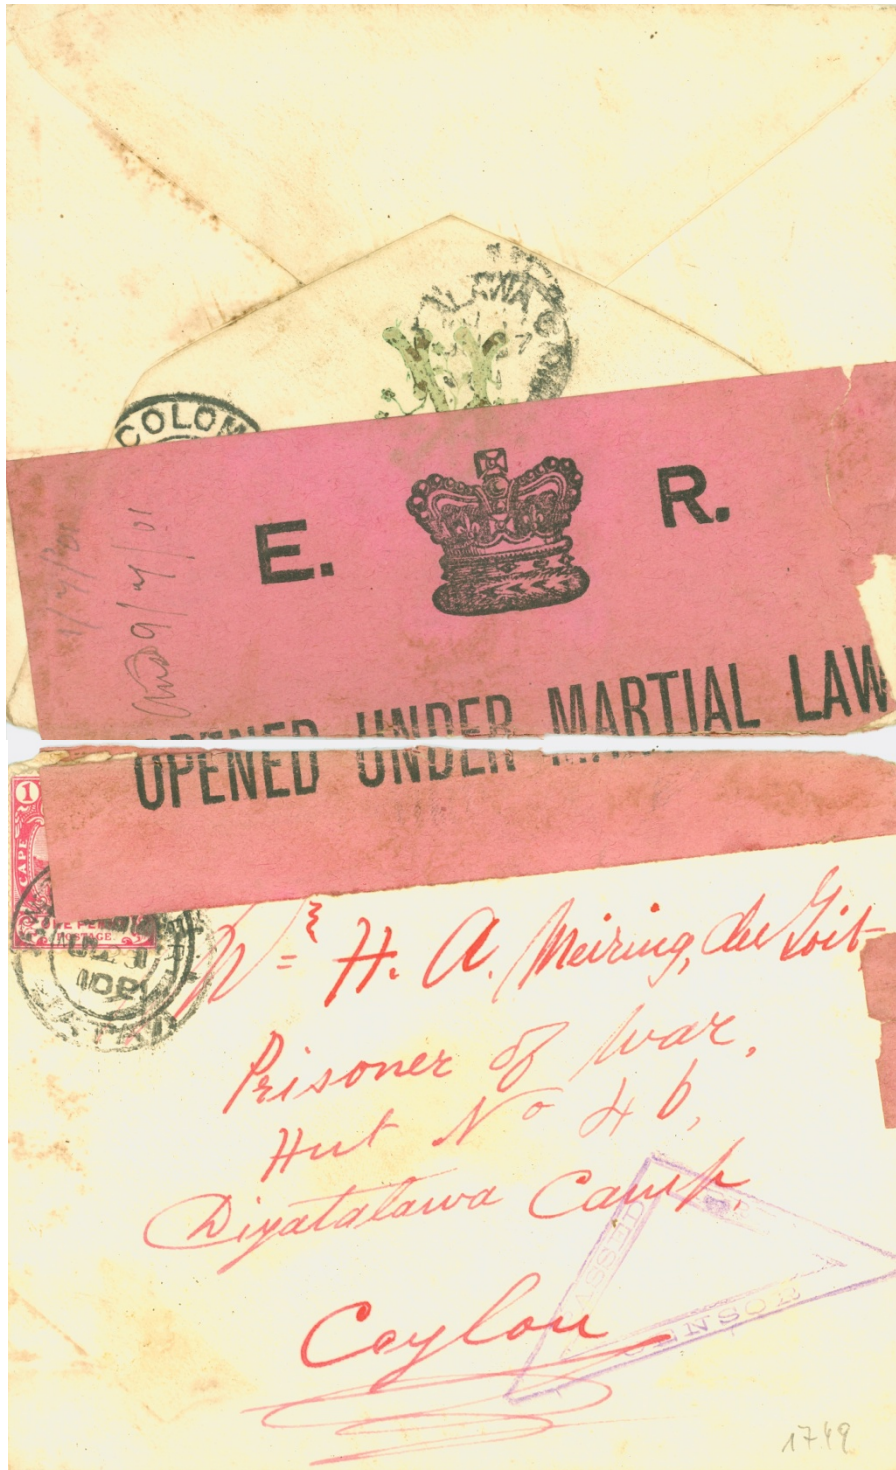 COLOM
LAWA
E. R.
9/7/01
OPENED UNDER MARTIAL LAW
OPENED UNDER
1
CAPE
POSTAGE
H. A. Meiring, du Toit
Prisoner of War,
Hut No 46,
Diyatalawa Camp,
Ceylon
PASSED
CENSOR
1749